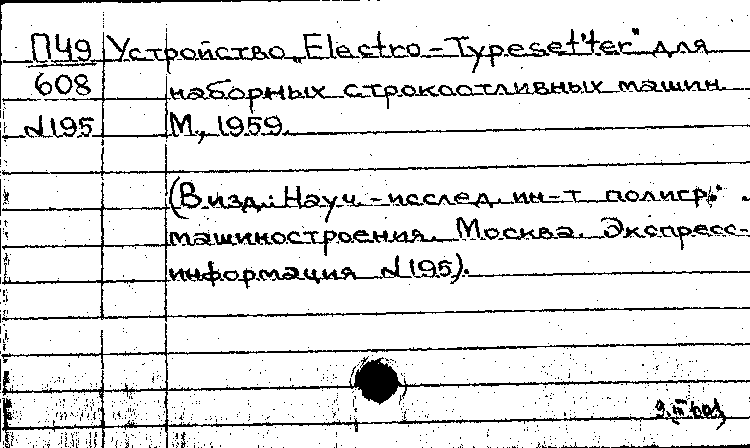 П49 Устройство „Electro-Typesetter" для
608 наборных строкоотливных машин.
№195 М., 1959.
(В изд.: Науч.-исслед. ин-т полигр.
машиностроения. Москва. Экспресс-
информация №195).